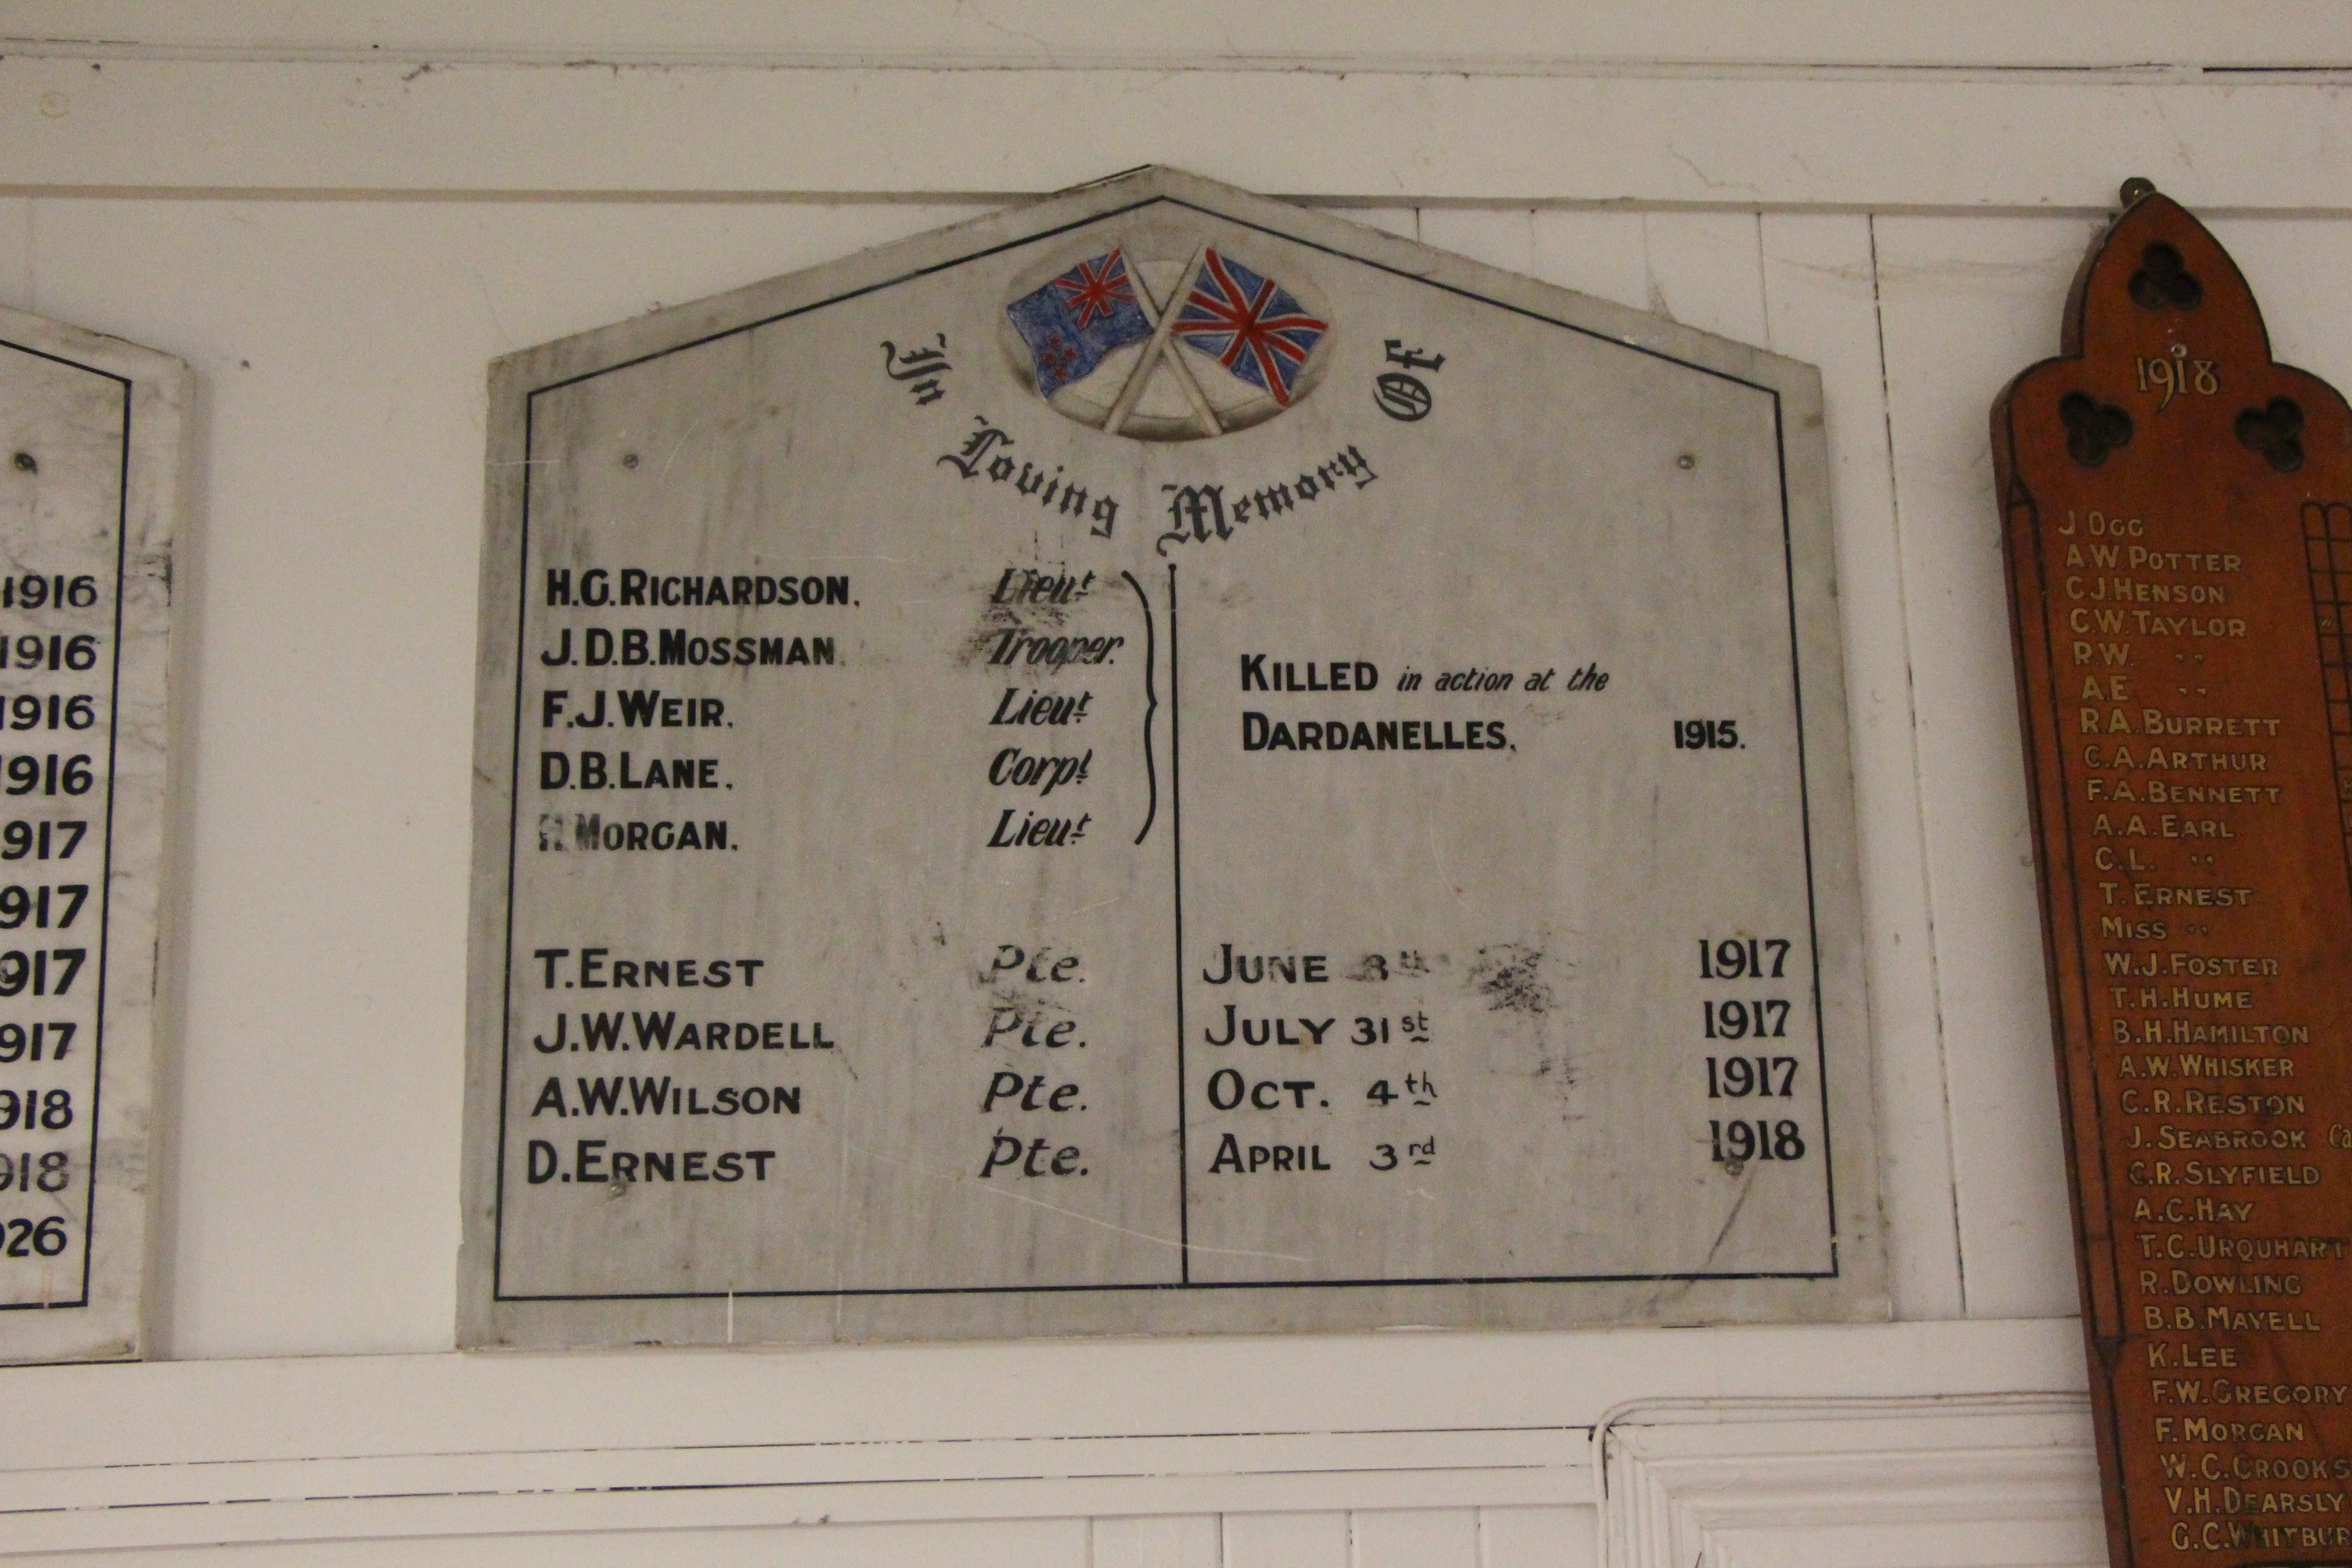 1916
1916
1916
1916
1917
1917
1917
1917
1918
1918
1926
In Loving Memory Of
H.G.RICHARDSON. Lieut
J.D.B.MOSSMAN. Trooper.
F.J.WEIR. Lieut
D.B.LANE. Corpl
H.MORGAN. Lieut
KILLED in action at the
DARDANELLES. 1915.
T.ERNEST Pte. JUNE 8th 1917
J.W.WARDELL Pte. JULY 31st 1917
A.W.WILSON Pte. OCT. 4th 1917
D.ERNEST Pte. APRIL 3rd 1918
1918
J OGG
A.W.POTTER
C.J.HENSON
C.W.TAYLOR
R.W. "
A.E. "
R.A.BURRETT
C.A.ARTHUR
F.A.BENNETT
A.A.EARL
C.L. "
T.ERNEST
MISS "
W.J.FOSTER
T.H.HUME
B.H.HAMILTON
A.W.WHISKER
C.R.RESTON
J.SEABROOK Ca
C.R.SLYFIELD
A.C.HAY
T.C.URQUHART
R.DOWLING
B.B.MAYELL
K.LEE
F.W.GREGORY
F.MORGAN
W.C.CROOKS
V.H.DEARSLY
G.C.WHITBUR